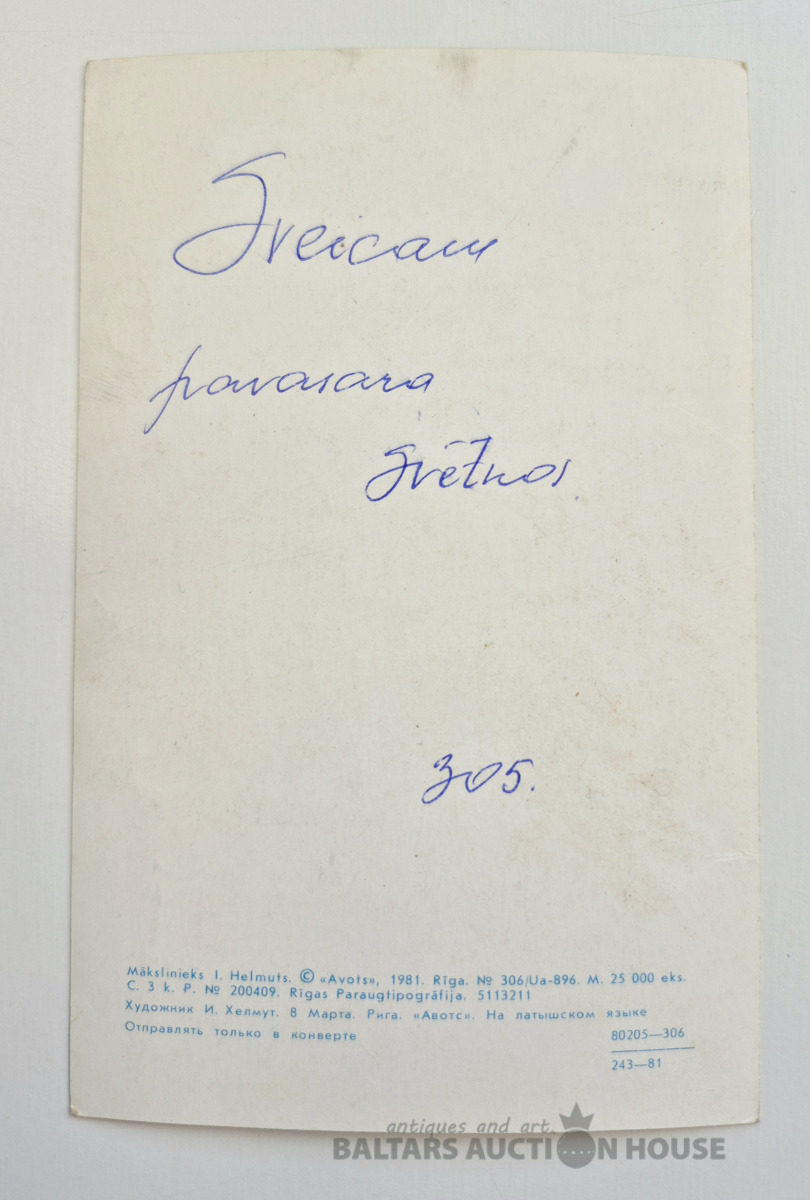 Sveicam
pavasara
svētkos.
305.
Mākslinieks I. Helmuts. © «Avots», 1981. Rīga. № 306/Ua-896. M. 25 000 eks.
C. 3 k. P. № 200409. Rīgas Paraugtipogrāfija. 5113211
Художник И. Хелмут. 8 Марта. Рига. «Авотс». На латышском языке
Отправлять только в конверте
80205—306
243—81
antiques and art.
BALTARS AUCTION HOUSE